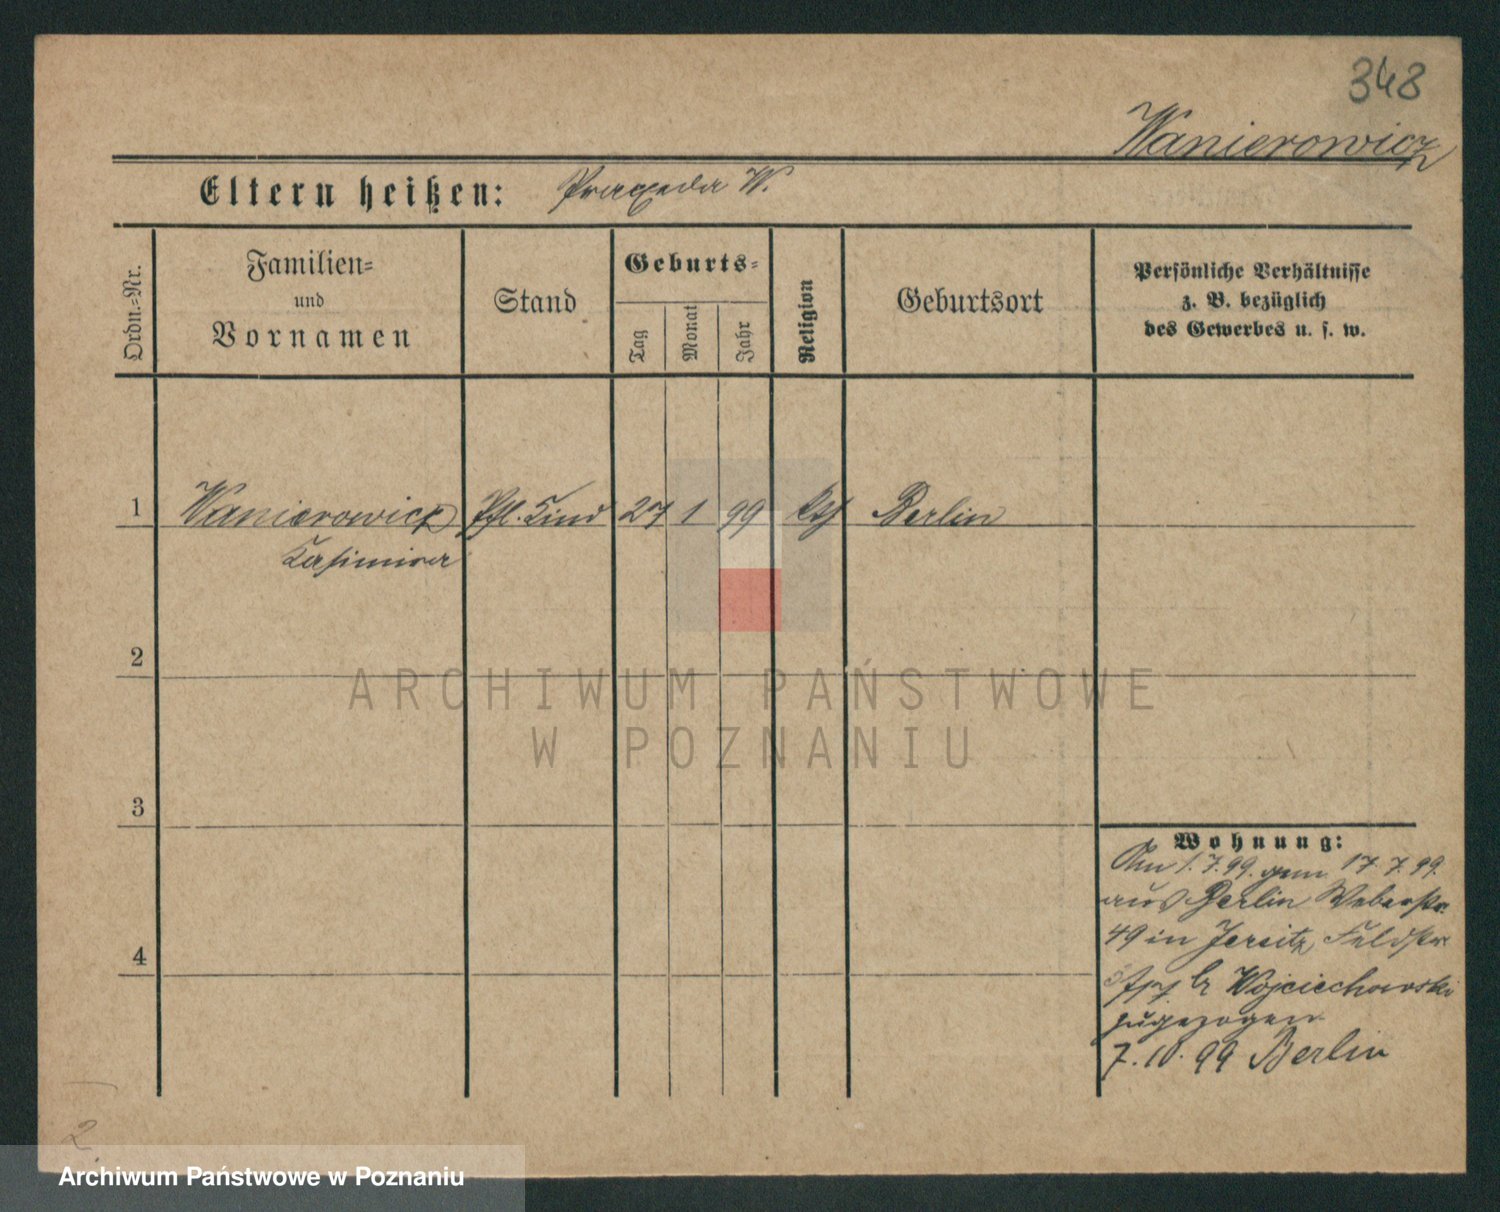 348
Wanierowicz
Eltern heißen: Praxeda W.
Ordn.-Nr.
Familien-
und
Vornamen
Stand
Geburts-
Tag
Monat
Jahr
Religion
Geburtsort
Persönliche Verhältnisse
z. B. bezüglich
des Gewerbes u. s. w.
1 Wanierowicz Pfl. Kind 27 1 99 kth Berlin
Kasimira
2
3
4
Wohnung:
Am 1.7.99. gem. 17.7.99.
aus Berlin Weberstr.
49 in Jersitz, Feldstr
b Wojciechowski
zugezogen
7.10.99 Berlin
2.
ARCHIWUM PAŃSTWOWE
W POZNANIU
Archiwum Państwowe w Poznaniu